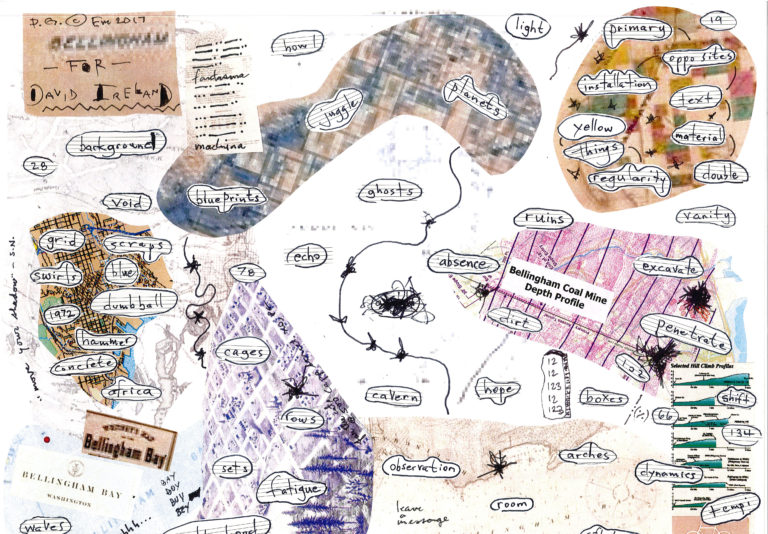 D.G. © Ene 2017
BELLINGHAM
— FOR —
DAVID IRELAND
fantasma
machina
howl
light
primary
19
opposites
installation
text
yellow
material
things
regularity
double
juggle
planets
background
28
blueprints
ghosts
void
ruins
vanity
grid
scraps
echo
absence
excavate
swirls
blue
78
Bellingham Coal Mine
Depth Profile
1972
dumbball
dirt
penetrate
hammer
cages
concrete
102
africa
cavern
hope
12
12
123
12
123
boxes
(%)
66
Selected Hill Climb Profiles
shift
134
rows
Bellingham Bay
BELLINGHAM BAY
WASHINGTON
BAY
BAY
sets
fatigue
observation
arches
dynamics
leave
a
message
room
tempi
waves
your shadow — S.N.